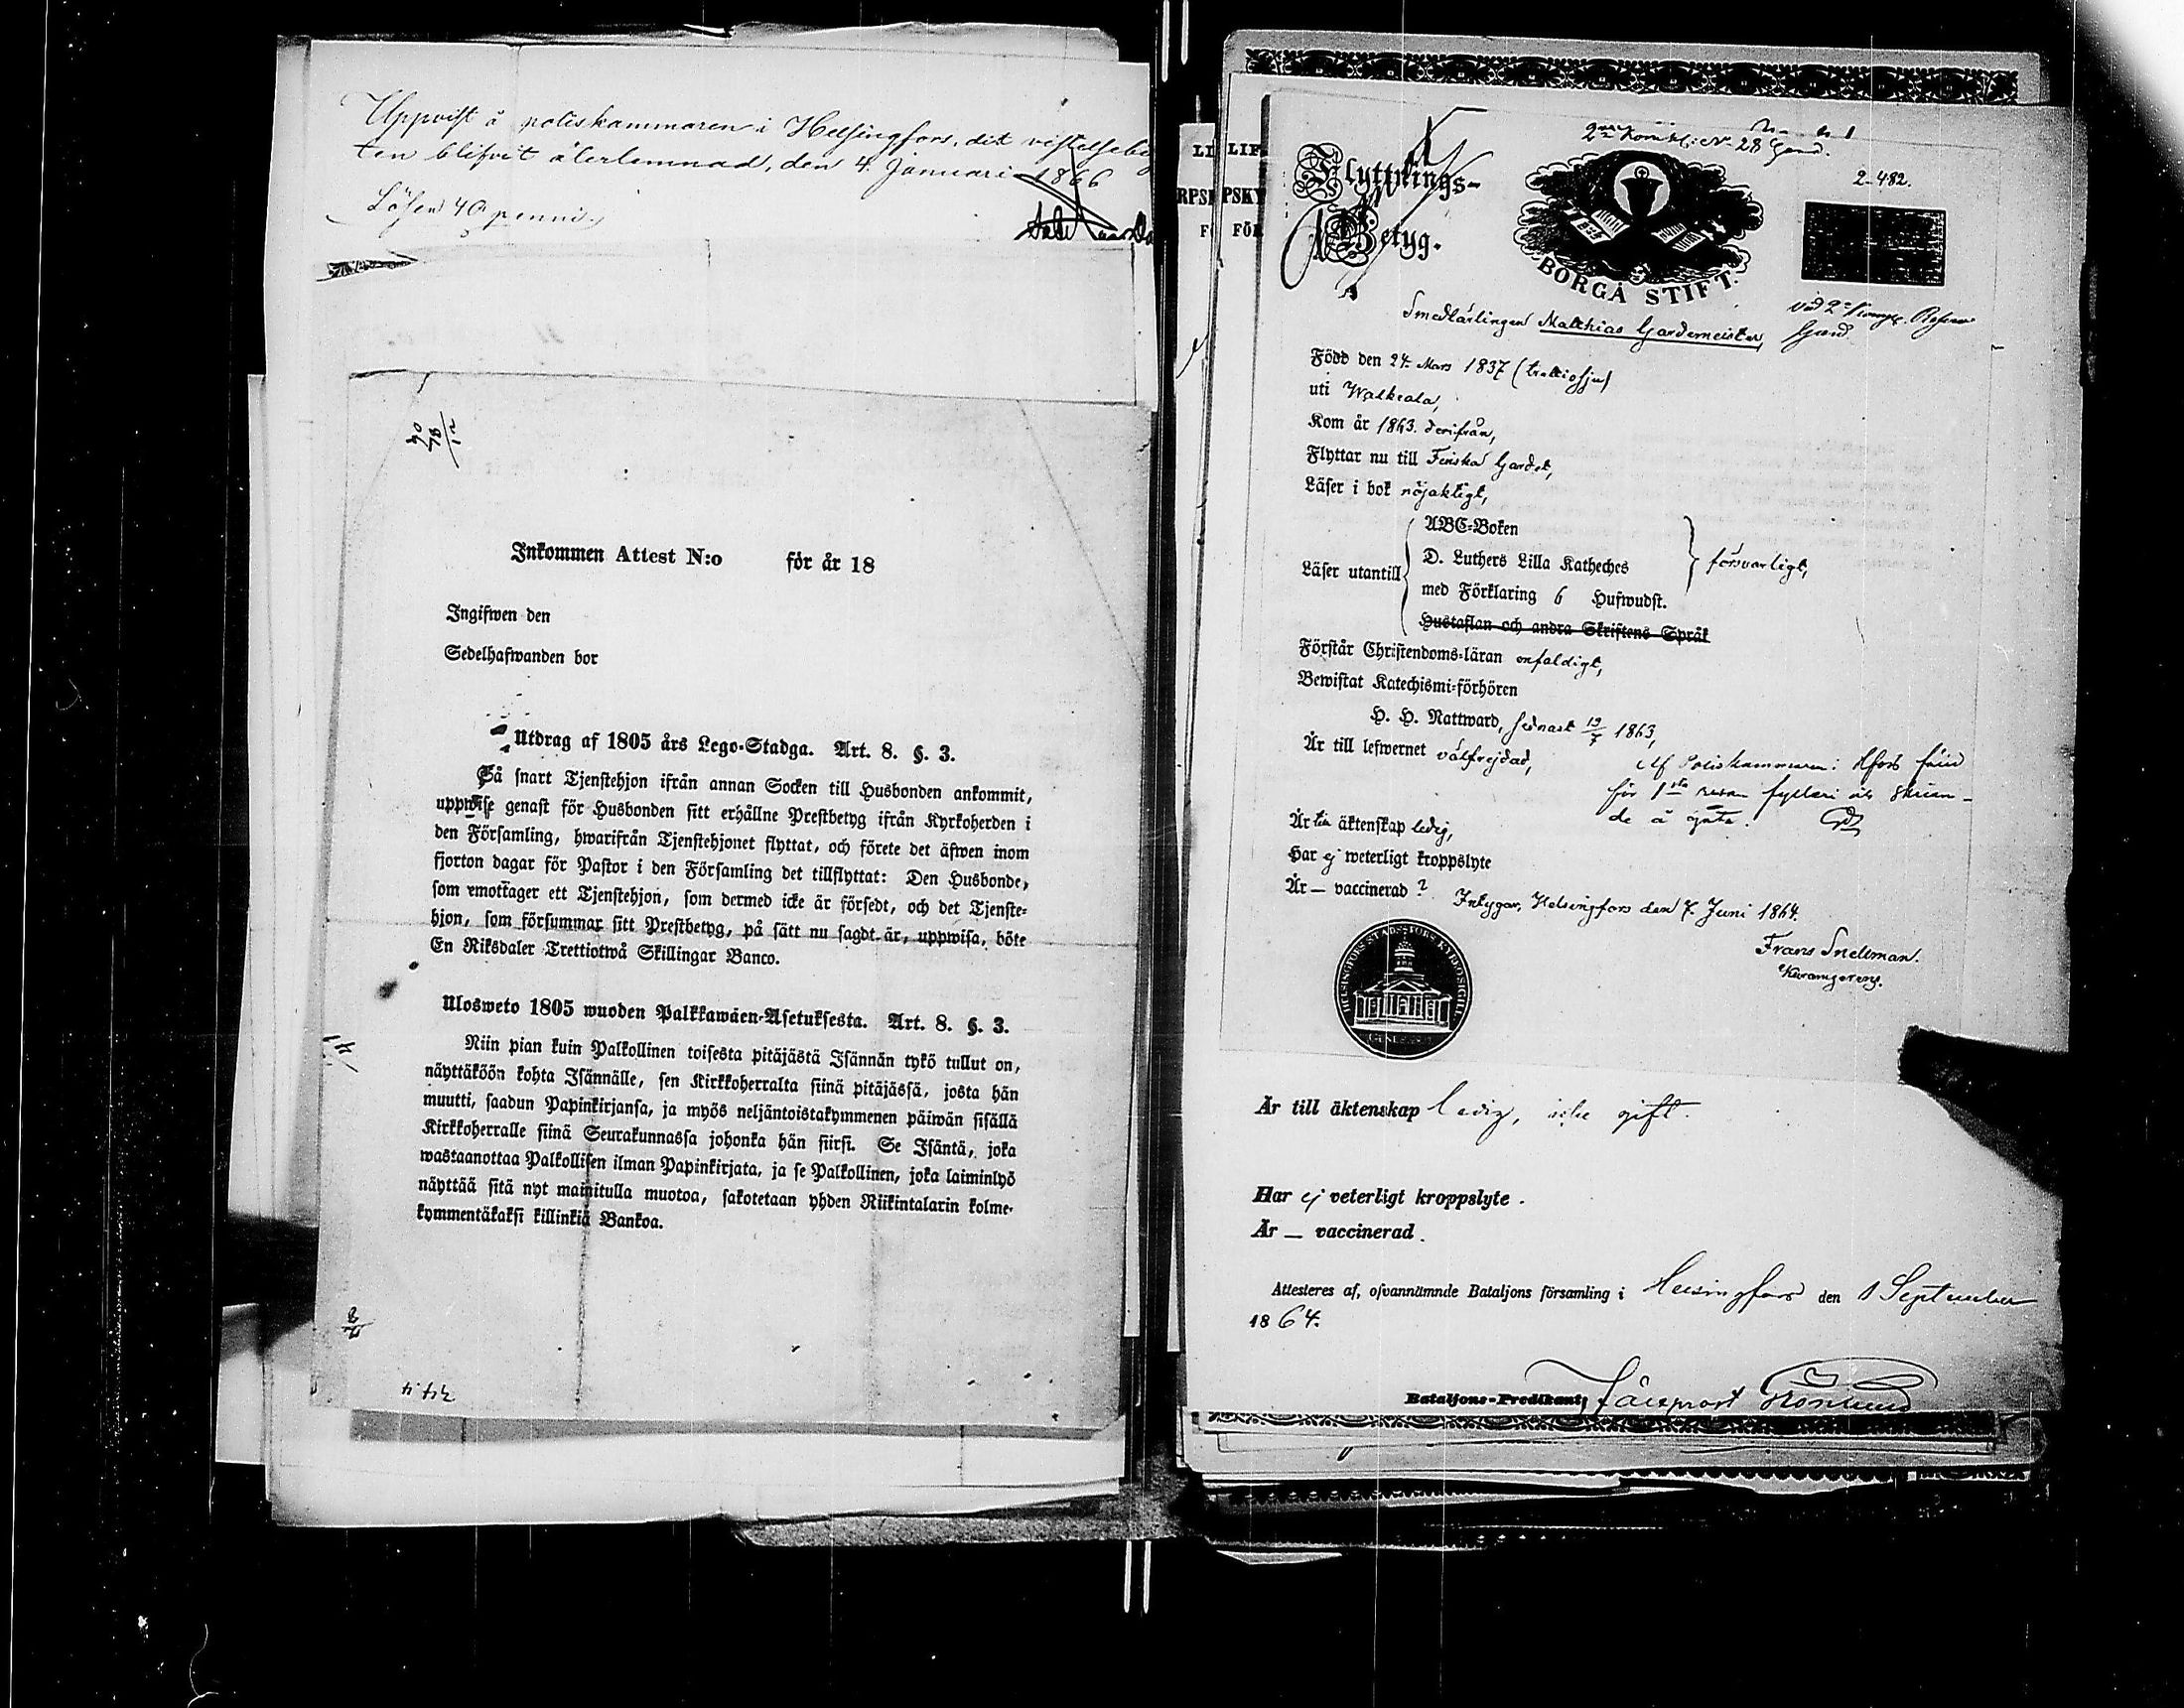 Uppvist å poliskammaren i Helsingfors, dit vistelsebe
ten blifvit återlemnad, den 4 Januari 1866
Lösen 40 penni.
Inkommen Attest N:o för år 18
Ingifwen den
Sedelhafwanden bor
Utdrag af 1805 års Lego-Stadga. Art. 8. §. 3.
Så snart Tjenstehjon ifrån annan Socken till Husbonden ankommit,
uppwise genast för Husbonden sitt erhållne Prestbetyg ifrån Kyrkoherden i
den Församling, hwarifrån Tjenstehjonet flyttat, och förete det äfwen inom
fjorton dagar för Pastor i den Församling det tillflyttat: Den Husbonde,
som emottager ett Tjenstehjon, som dermed icke är försedt, och det Tjenste-
hjon, som försummar sitt Prestbetyg, på sätt nu sagdt är, uppwisa, böte
En Riksdaler Trettiotwå Skillingar Banco.
Ulosweto 1805 wuoden Palkkawäen-Asetuksesta. Art. 8. §. 3.
Niin pian kuin Palkollinen toisesta pitäjästä Isännän tykö tullut on,
näyttäköön kohta Isännälle, sen Kirkkoherralta siinä pitäjässä, josta hän
muutti, saadun Papinkirjansa, ja myös neljäntoistakymmenen päiwän sisällä
Kirkkoherralle siinä Seurakunnassa johonka hän siirsi. Se Isäntä, joka
wastaanottaa Palkollisen ilman Papinkirjata, ja se Palkollinen, joka laiminlyö
näyttää sitä nyt mainitulla muotoa, sakotetaan yhden Riikintalarin kolme-
kymmentäkaksi killinkiä Bankoa.
LI
RPS
F
LIF
PSKY
FÖR
Flyttnings-
Betyg.
2-482.
BORGÅ STIFT.
Smedlärlingen Matthias Gardemeister,
Född den 24. Mars 1837 (trettiosju)
uti Walkeala,
Kom år 1863. derifrån,
Flyttar nu till Finska Gardet,
Läser i bok nöjaktigt,
Läser utantill
ABC-Boken
D. Luthers Lilla Katheches
med Förklaring 6 Hufwudst.
Hustaflan och andra Skriftens Språk
försvarligt,
Förstår Christendoms-läran enfaldigt,
Bewistat Katechismi-förhören
H. H. Nattward, sednast 19/7 1863,
Är till lefwernet välfrejdad,
Af Poliskammaren i Hfors fäld
för 1sta resan fylleri
de å gata.
Är till äktenskap ledig,
Har ej weterligt kroppslyte
Är — vaccinerad ?
Intygar, Helsingfors den 7. Juni 1864.
Frans Snellman.
HELSINGFORS STADS
Är till äktenskap ledig, icke gift.
Har ej veterligt kroppslyte.
Är — vaccinerad.
Attesteras af, ofvannämnde Bataljons församling i Helsingfors den 1 September
1864.
Bataljons-Predikant,